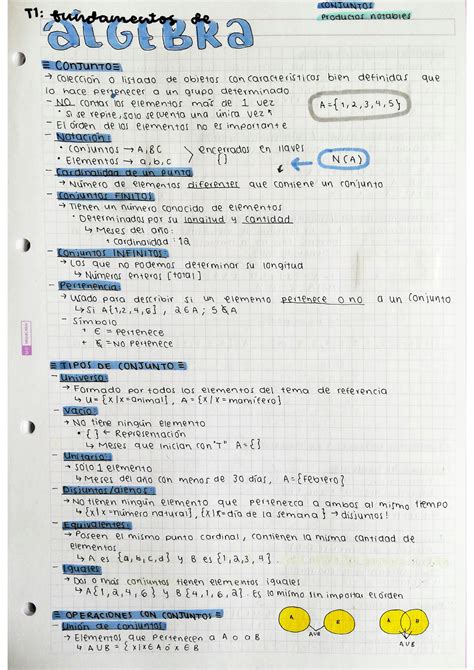 T1: fundamentos de
ALGEBRA
CONJUNTOS
Productos notables
≡ CONJUNTO ≡
→ Colección o listado de objetos con características bien definidas que
lo hace pertenecer a un grupo determinado
- NO contar los elementos más de 1 vez
• Si se repite, solo se cuenta una única vez
A={1,2,3,4,5}
- El órden de los elementos no es importante
- Notación:
• Conjuntos → A,B,C
• Elementos → a,b,c
encerrados en llaves
{ }
← N(A)
- Cardinalidad de un punto
→ Número de elementos diferentes que contiene un conjunto
- Conjuntos FINITOS:
→ Tienen un número conocido de elementos
• Determinados por su longitud y cantidad
↳ Meses del año:
+ Cardinalidad: 12
- Conjuntos INFINITOS:
→ Los que no podemos determinar su longitud
↳ Números enteros [total]
- Pertenencia:
→ Usado para describir si un elemento pertenece o no a un conjunto
↳ Si A{1,2,4,6}, 2∈A; 5∉A
- Símbolo
+ ∈ = Pertenece
+ ∉ = No pertenece
≡ TIPOS DE CONJUNTO ≡
- Universo:
→ Formado por todos los elementos del tema de referencia
↳ U={x/x=animal}, A={x/x=mamífero}
- Vacío:
→ No tiene ningún elemento
• { } ← Representación
↳ Meses que inician con "T" A={}
- Unitario:
→ Solo 1 elemento
↳ Meses del año con menos de 30 días, A={Febrero}
- Disjuntos/ajenos:
→ No tienen ningún elemento que pertenezca a ambos al mismo tiempo
↳ {x/x=número natural}, {x/x=día de la semana} → disjuntos!
- Equivalentes:
→ Poseen el mismo punto cardinal, contienen la misma cantidad de
elementos
↳ A es {a,b,c,d} y B es {1,2,3,4}
- Iguales:
→ Dos o más conjuntos tienen elementos iguales
↳ A{1,2,4,6} y B{4,1,6,2}. Es lo mismo sin importar el órden
≡ OPERACIONES CON CONJUNTOS ≡
- Unión de conjuntos
→ Elementos que pertenecen a A o a B
↳ A∪B = {x/x∈A ó x∈B
A B
A∪B
A B
A∪B